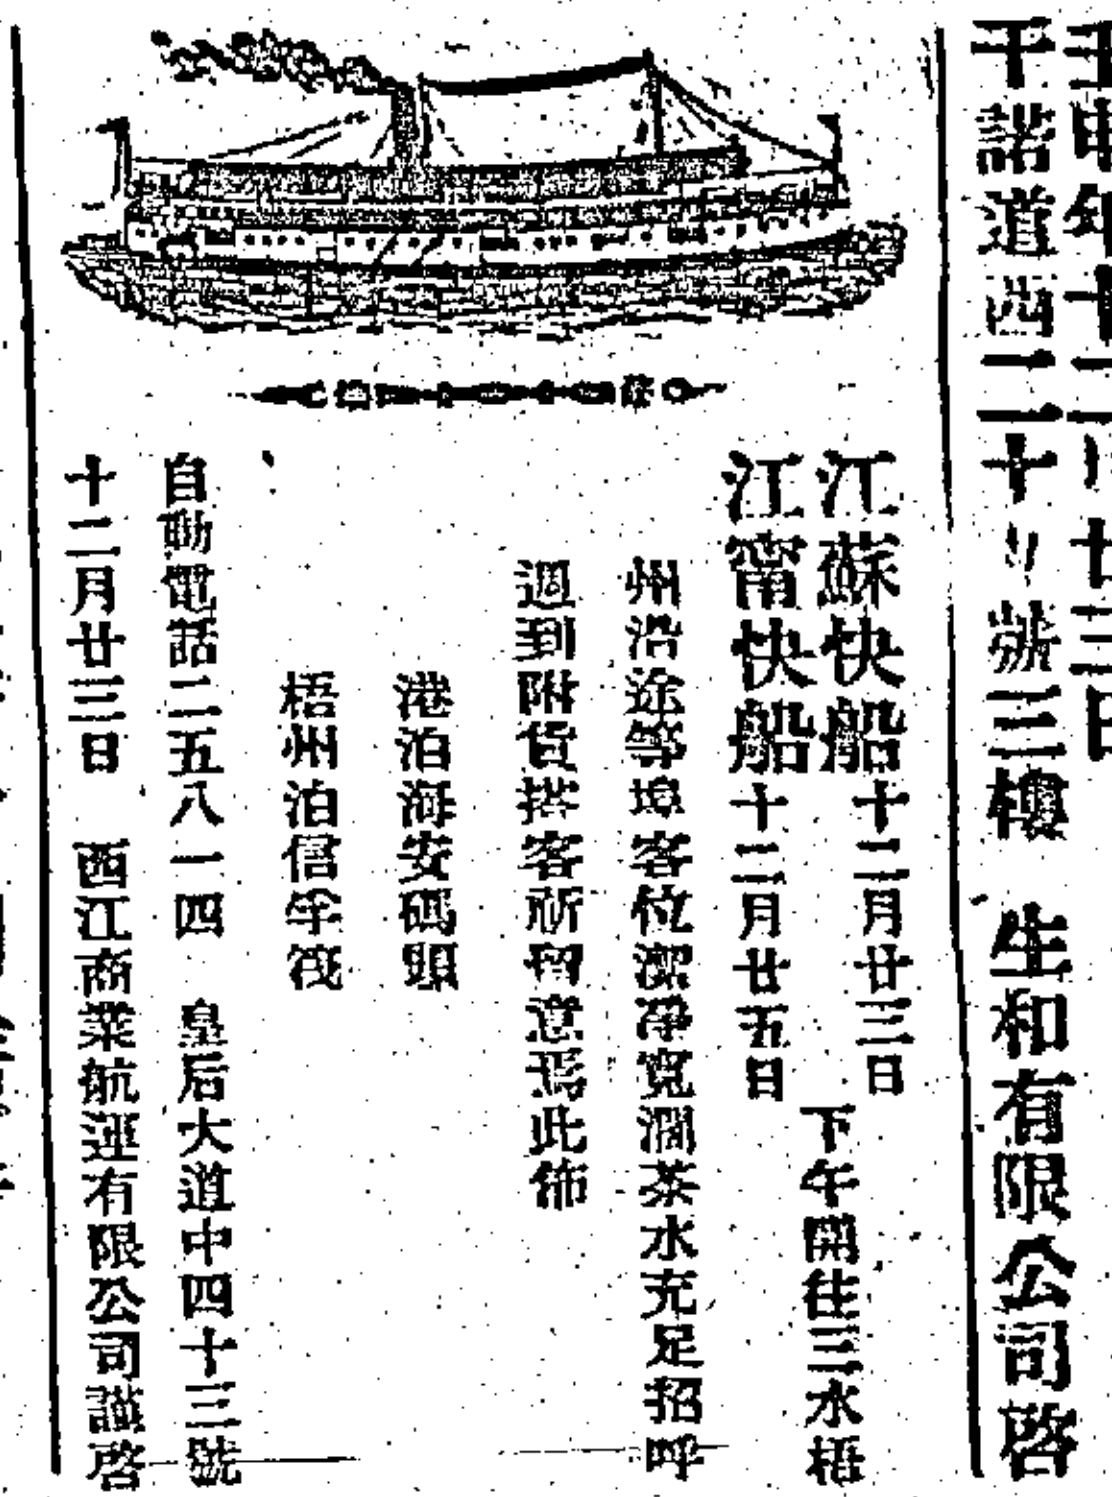 壬申年十二月廿三日
干諾道西二十號三樓　生和有限公司啓
江蘇快船十二月廿三日
江甯快船十二月廿五日
下午開往三水梧
州沿途等埠客位潔淨寬濶茶水充足招呼
週到附貨搭客祈留意焉此佈
港泊海安碼頭
梧州泊信孚筏
自動電話二五八一四　皇后大道中四十三號
十二月廿三日　西江商業航運有限公司謹啓